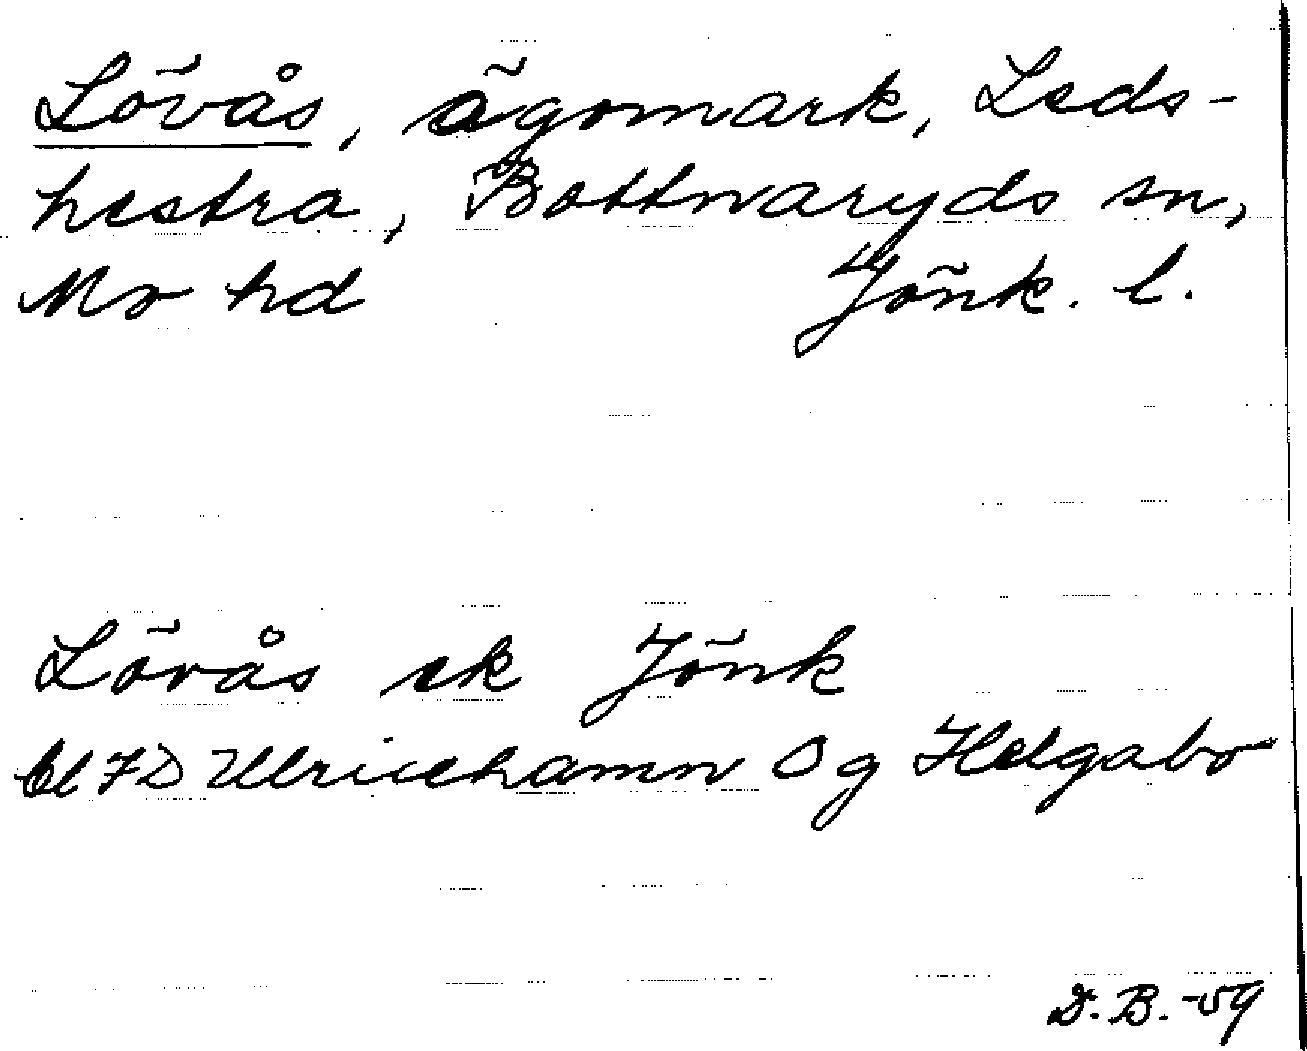 Lövås, ägomark, Leds-
hestra, Bottnaryds sn,
Mo hd Jönk. l.
Lövås ek Jönk
bl 7D Ulricehamn Og Helgabo
D.B.-59